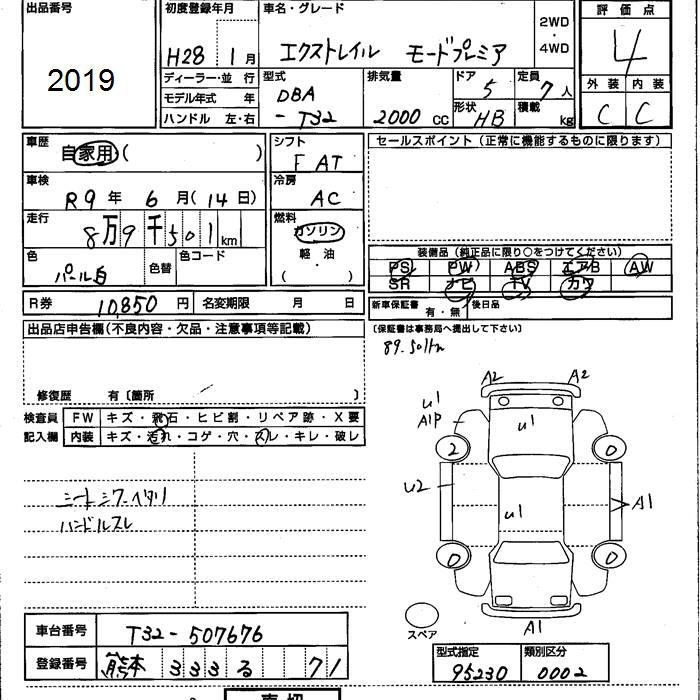 出品番号
2019
初度登録年月
H28 1月
車名・グレード
エクストレイル モードプレミア
2WD
・
4WD
評価点
4
外装 内装
C C
ディーラー・並行
モデル年式 年
ハンドル 左・右
型式
DBA
- T32
排気量
2000 cc
ドア
5
形状
HB
定員
7人
積載
kg
車歴
自家用 ( )
車検
R9年 6月 (14日)
走行
8万9千501km
色
パール白
色替
色コード
シフト
F AT
冷房
AC
燃料
ガソリン
軽・油
( )
セールスポイント (正常に機能するものに限ります)
装備品 (純正品に限り○をつけてください)
PS PW ABS エアB AW
SR ナビ TV カワ
R券 10,850円
名変期限 月 日
新車保証書
有・無
後日品
(保証書は事務局へ提出して下さい)
出品店申告欄(不良内容・欠品・注意事項等記載)
89.501km
修復歴 有〔箇所 〕
検査員
記入欄
FW キズ・飛石・ヒビ割・リペア跡・X要
内装 キズ・汚れ・コゲ・穴・スレ・キレ・破レ
シートシワ・ヘタリ
ハンドルスレ
A2 A2
U1
A1P
U1
2 0
U2
U1
A1
0 0
スペア
A1
車台番号 T32-507676
登録番号 熊本 333 る 71
型式指定 類別区分
95230 0002